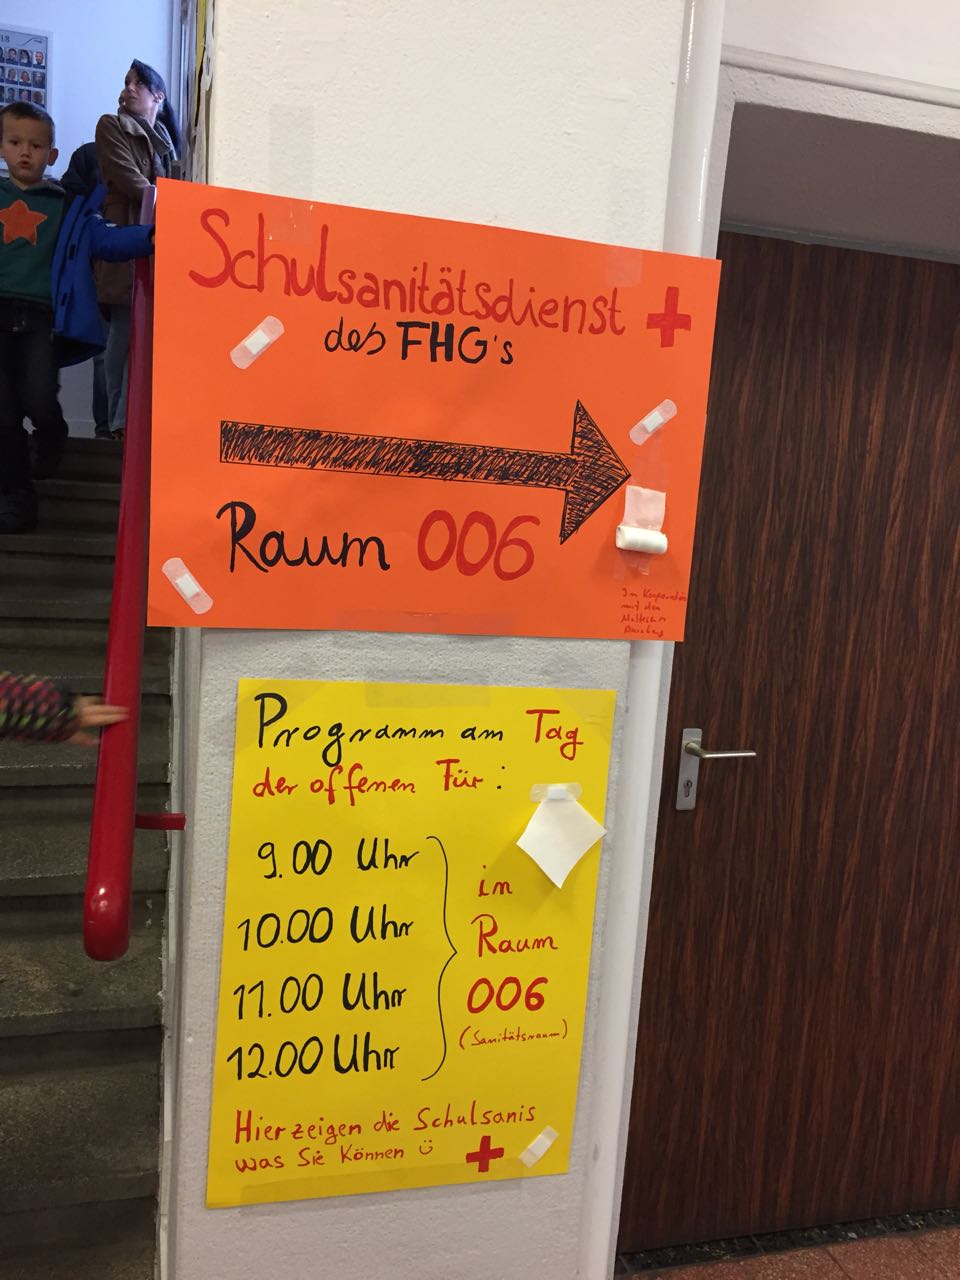 18
Schulsanitätsdienst
des FHG's
Raum 006
In Kooperation
mit den
Maltesern
Programm am Tag
der offenen Tür:
9.00 Uhr
10.00 Uhr
11.00 Uhr
12.00 Uhr
in
Raum
006
(Sanitätsraum)
Hier zeigen die Schulsanis
was Sie können ☺